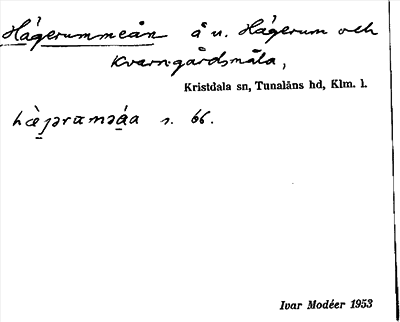 Hägerummeån å n. Hägerum och
Kvarngårdsmåla,
Kristdala sn, Tunaläns hd, Klm. l.
s. 66.
Ivar Modéer 1953